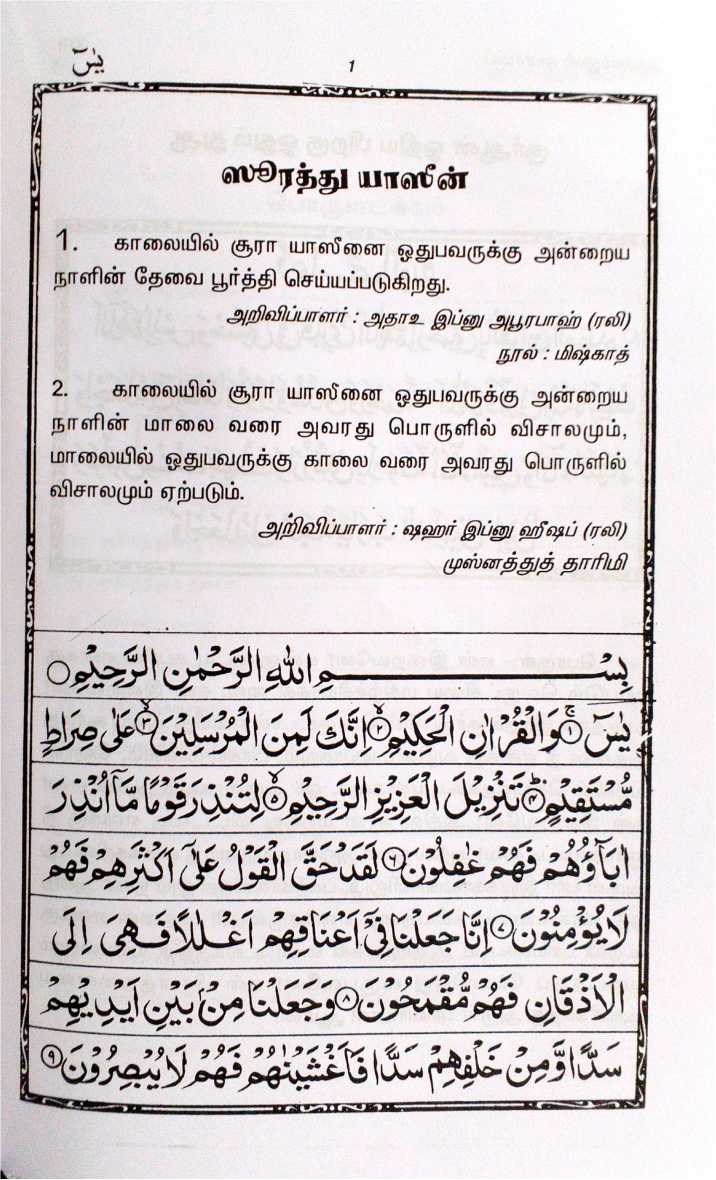 يٰسٓ
1
ஸூரத்து யாஸீன்
1. காலையில் சூரா யாஸீனை ஓதுபவருக்கு அன்றைய
நாளின் தேவை பூர்த்தி செய்யப்படுகிறது.
அறிவிப்பாளர் : அதாஉ இப்னு அபூரபாஹ் (ரலி)
நூல் : மிஷ்காத்
2. காலையில் சூரா யாஸீனை ஓதுபவருக்கு அன்றைய
நாளின் மாலை வரை அவரது பொருளில் விசாலமும்,
மாலையில் ஓதுபவருக்கு காலை வரை அவரது பொருளில்
விசாலமும் ஏற்படும்.
அறிவிப்பாளர் : ஷஹர் இப்னு ஹீஷப் (ரலி)
முஸ்னத்துத் தாரிமி
بِسْمِ اللهِ الرَّحْمٰنِ الرَّحِيْمِ
يٰسٓ ۚ﴿۱﴾ وَالْقُرْاٰنِ الْحَكِيْمِ ۙ﴿۲﴾ اِنَّكَ لَمِنَ الْمُرْسَلِيْنَ ۙ﴿۳﴾ عَلٰى صِرَاطٍ
مُّسْتَقِيْمٍ ؕ﴿۴﴾ تَنْزِيْلَ الْعَزِيْزِ الرَّحِيْمِ ۙ﴿۵﴾ لِتُنْذِرَ قَوْمًا مَّاۤ اُنْذِرَ
اٰبَآؤُهُمْ فَهُمْ غٰفِلُوْنَ ﴿۶﴾ لَقَدْ حَقَّ الْقَوْلُ عَلٰٓى اَكْثَرِهِمْ فَهُمْ
لَا يُؤْمِنُوْنَ ﴿۷﴾ اِنَّا جَعَلْنَا فِىْٓ اَعْنَاقِهِمْ اَغْلٰلًا فَهِىَ اِلَى
الْاَذْقَانِ فَهُمْ مُّقْمَحُوْنَ ﴿۸﴾ وَجَعَلْنَا مِنْۢ بَيْنِ اَيْدِيْهِمْ
سَدًّا وَّمِنْ خَلْفِهِمْ سَدًّا فَاَغْشَيْنٰهُمْ فَهُمْ لَا يُبْصِرُوْنَ ﴿۹﴾